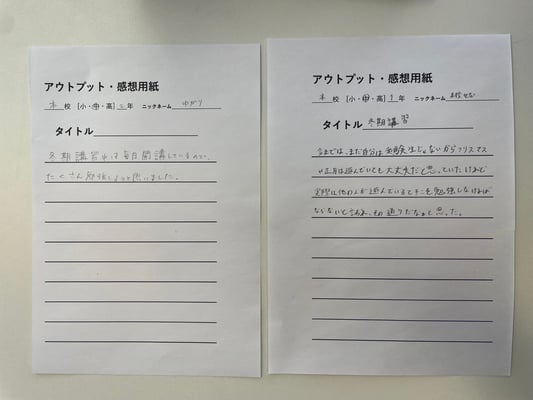 アウトプット・感想用紙
本 校 [小・中・高] 二 年 ニックネーム ゆかり
タイトル
冬期講習中は毎日開講しているので、
たくさん勉強しようと思いました。
アウトプット・感想用紙
本 校 [小・中・高] 1 年 ニックネーム
タイトル 冬期講習
今までは、まだ自分は受験生じゃないからクリスマス
い正月は遊んでいても大丈夫だと思っていたけれど
実際は他の人が遊んでいるときこそ勉強しなければ
ならないと言われ、その通りだなぁと思った。